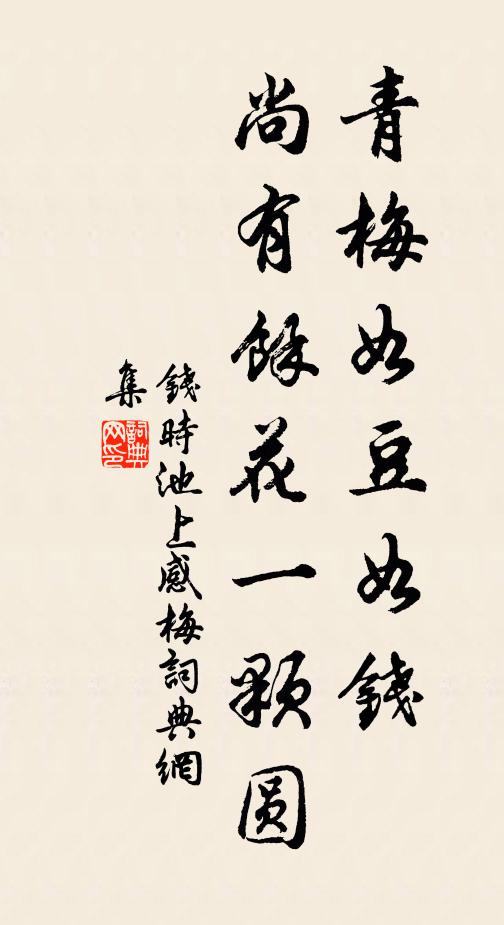 青梅如豆如錢
尚有餘花一顆圆
錢時池上感梅詞典網
集
詞典
网印